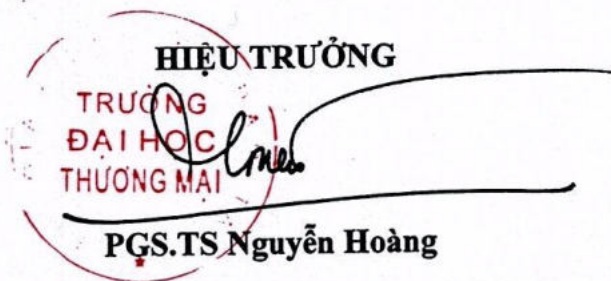 HIỆU TRƯỞNG
TRƯỜNG
ĐẠI HỌC
THƯƠNG MẠI
PGS.TS Nguyễn Hoàng